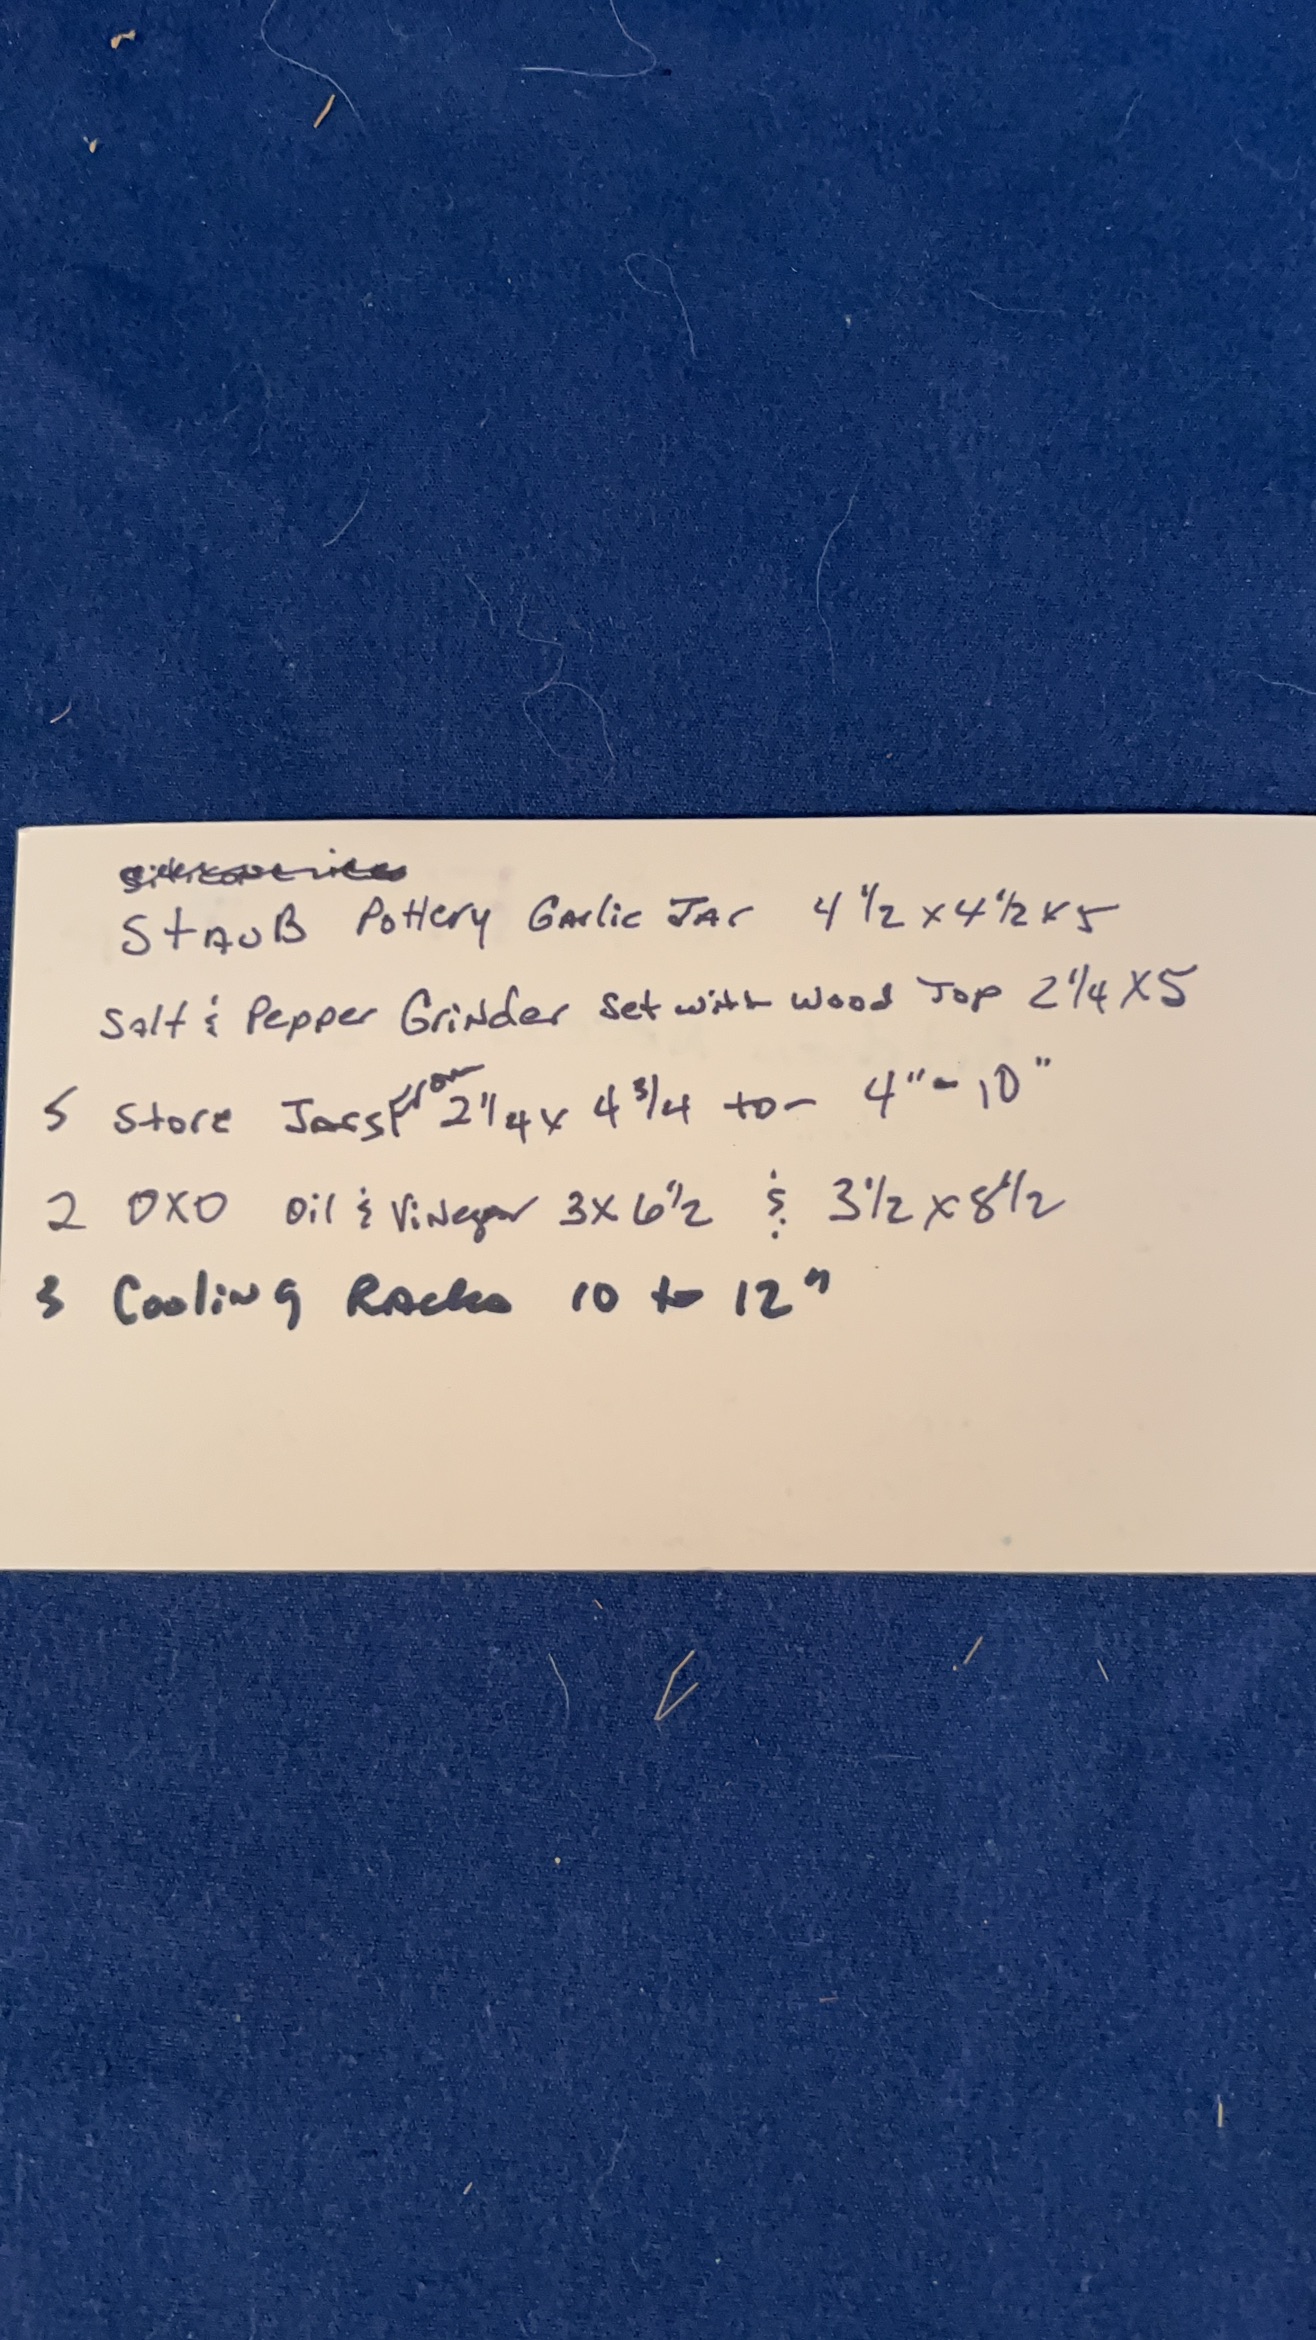 Staub Pottery Garlic Jar 4 1/2 x 4 1/2 x 5
Salt & Pepper Grinder Set with Wood Top 2 1/4 x 5
5 Store Jars from 2 1/4 x 4 3/4 to - 4" - 10"
2 OXO Oil & Vinegar 3 x 6 1/2 & 3 1/2 x 8 1/2
3 Cooling Racks 10 to 12"